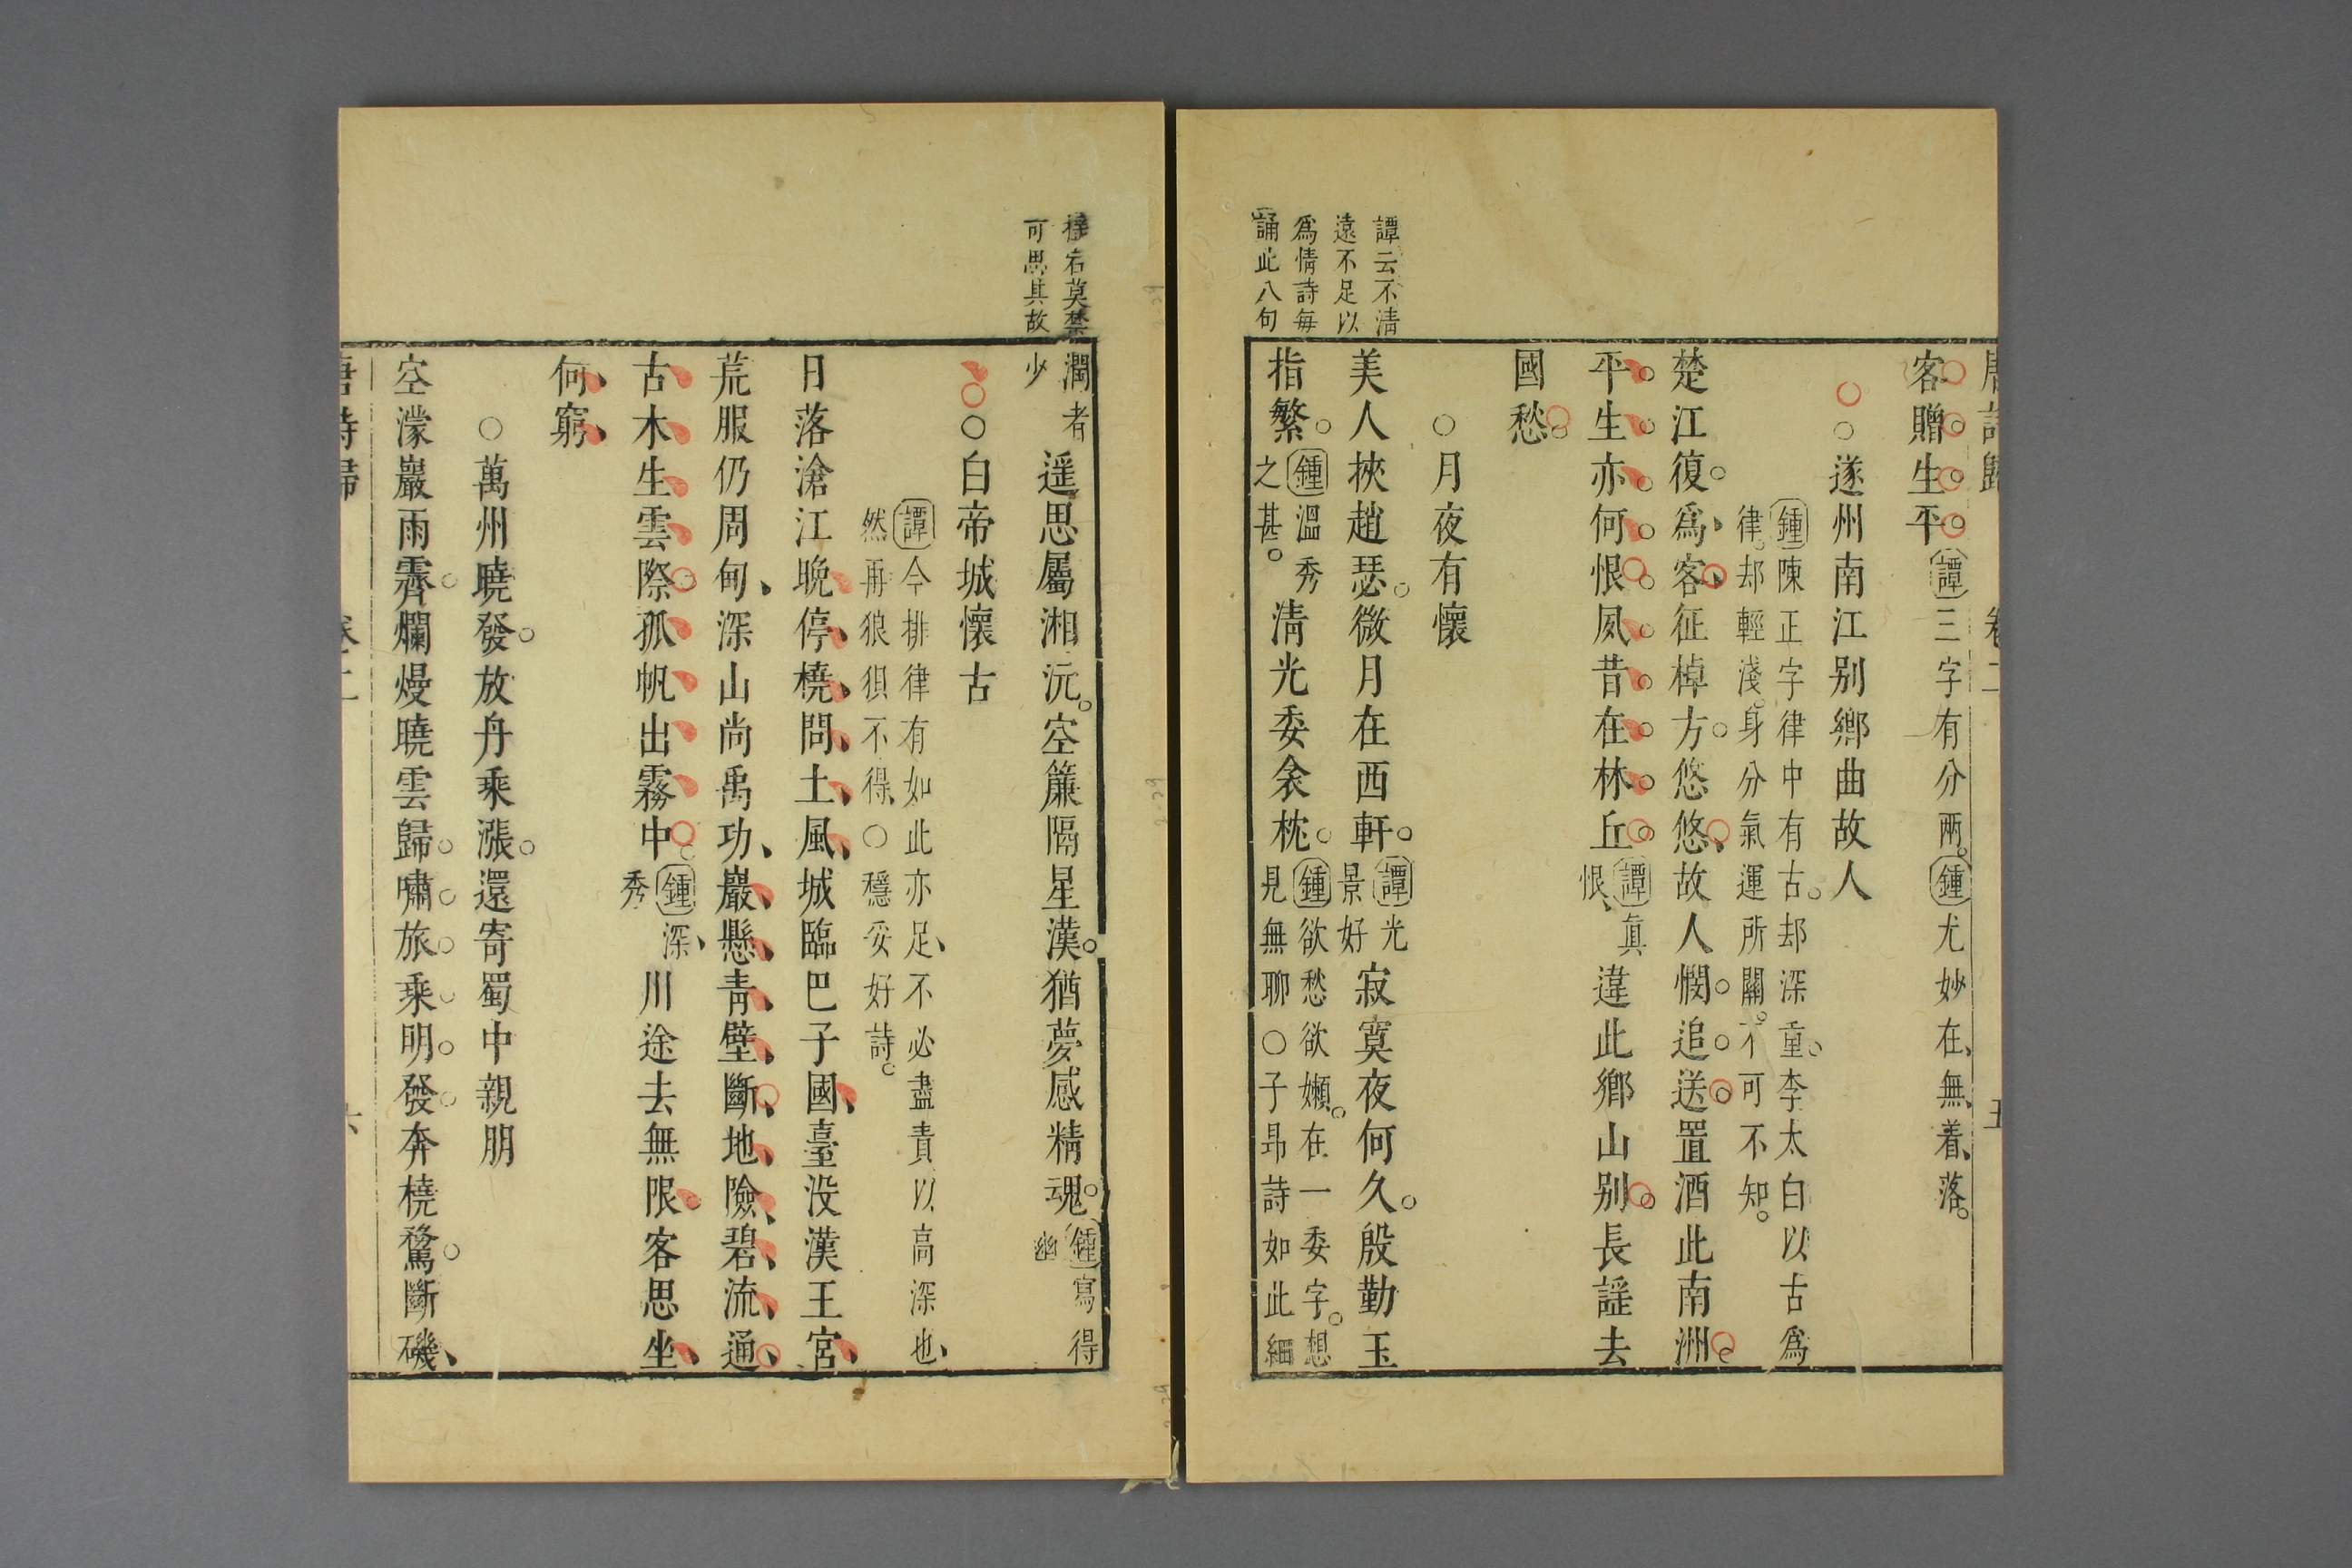 唐詩歸 卷二 五
客贈生平譚三字有分兩鍾尤妙在無着落
遂州南江别鄉曲故人
鍾陳正字律中有古却深重李太白以古爲
律却輕淺身分氣運所關不可不知
楚江復爲客征棹方悠悠故人憫追送置酒此南洲
平生亦何恨夙昔在林丘譚眞恨違此鄉山别長謡去
國愁
○月夜有懷
美人挾趙瑟微月在西軒譚光景好寂寞夜何久殷勤玉
指繁鍾溫秀之甚清光委衾枕鍾欲愁欲嬾在一委字想見無聊○子昂詩如此細
譚云不清
遠不足以
爲情詩每
誦此八句
可思其故
潤者少遥思屬湘沅空簾隔星漢猶夢感精魂鍾寫得幽
○白帝城懷古
譚今排律有如此亦足不必盡責以高深也
然再狼狽不得○穩妥好詩
日落滄江晚停橈問土風城臨巴子國臺没漢王宮
荒服仍周甸深山尚禹功巖懸青壁斷地險碧流通
古木生雲際孤帆出霧中鍾深秀川途去無限客思坐
何窮
○萬州曉發放舟乘漲還寄蜀中親朋
空濛巖雨霽爛熳曉雲歸嘯旅乘明發奔橈騖斷磯
唐詩歸 卷二 六